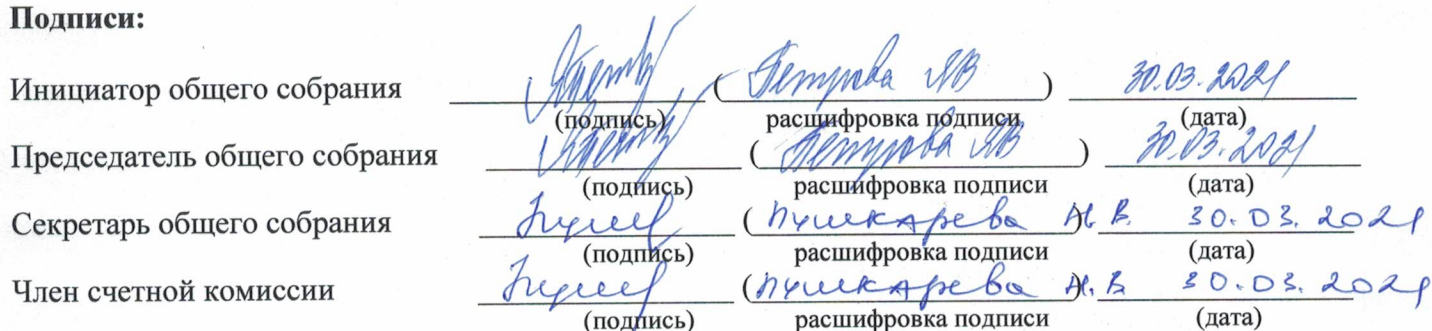 Подписи:
Инициатор общего собрания ( Петрова ЯВ ) 30.03.2021
(подпись) расшифровка подписи (дата)
Председатель общего собрания ( Петрова ЯВ ) 30.03.2021
(подпись) расшифровка подписи (дата)
Секретарь общего собрания ( Пушкарева Н.В. ) 30.03.2021
(подпись) расшифровка подписи (дата)
Член счетной комиссии ( Пушкарева Н.В. ) 30.03.2021
(подпись) расшифровка подписи (дата)